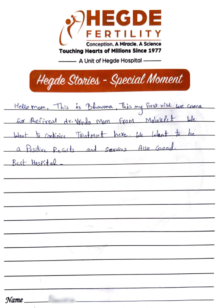 HEGDE
FERTILITY
Conception. A Miracle. A Science
Touching Hearts of Millions Since 1977
A Unit of Hegde Hospital
Hegde Stories - Special Moment
Hello mam, This is Bhavana, This my First visit we came
for Referral dr. Mam From Malakpet We
Want to continue Treatment here. We Want to be
a Positive Results and Services Also Good.
Best Hospital.
Name